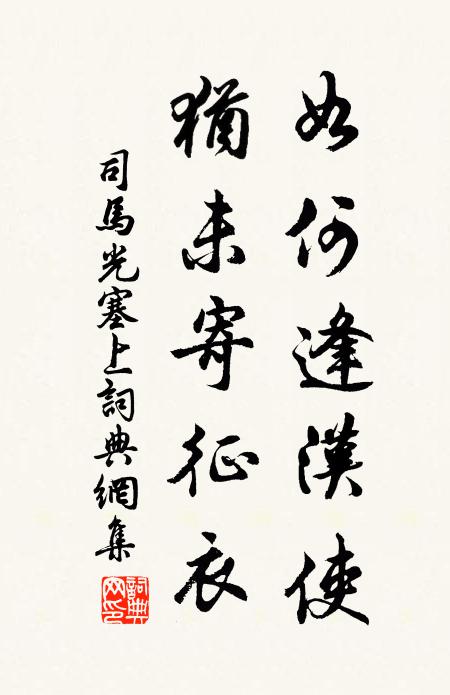 如何逢漢使
猶未寄征衣
司馬光塞上詞典網集
詞典网印